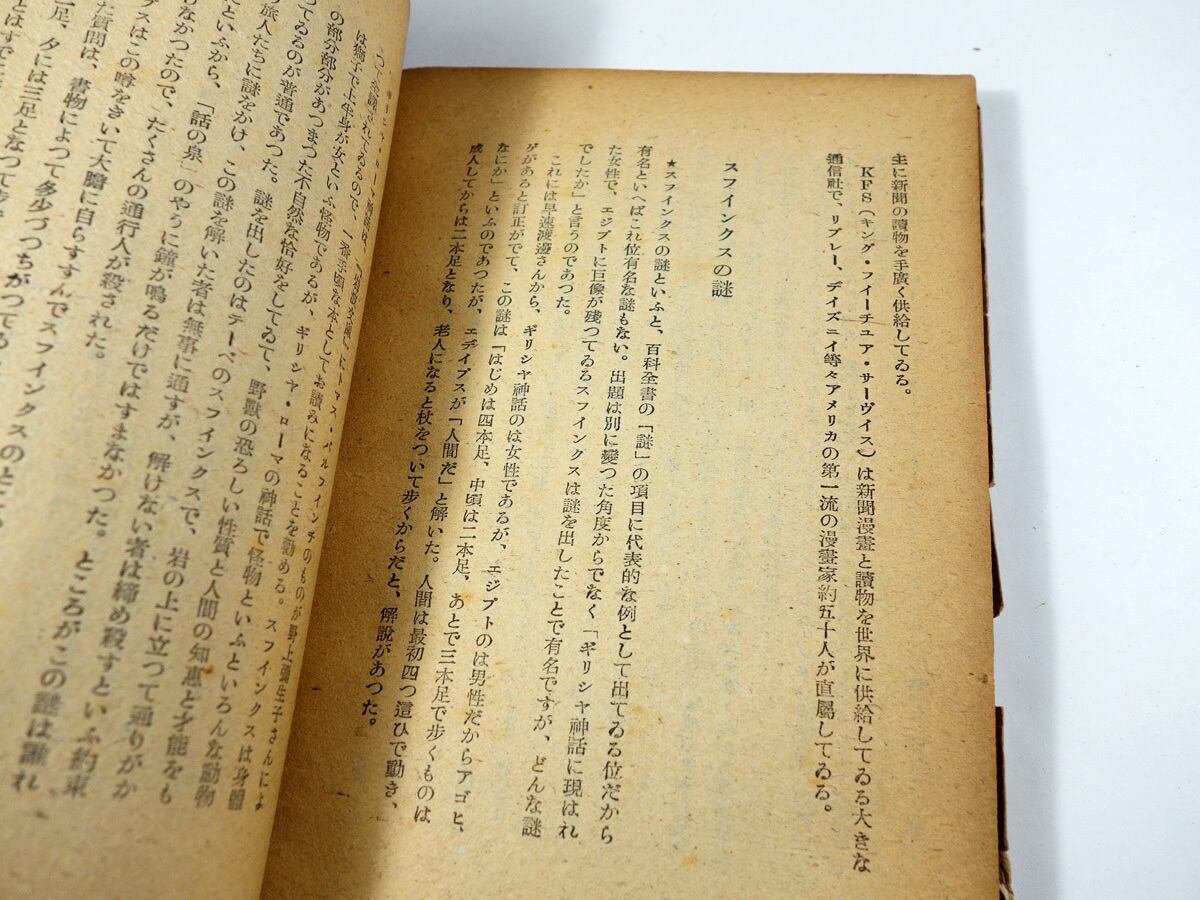 主に新聞の讀物を手廣く供給してゐる。
KFS（キング・フイーチュア・サーヴイス）は新聞漫畫と讀物を世界に供給してゐる大きな
通信社で、リプレー、デイズニイ等々アメリカの第一流の漫畫家約五十人が直屬してゐる。
スフインクスの謎
★スフインクスの謎といふと、百科全書の「謎」の項目に代表的な例として出てゐる位だから
有名といへばこれ位有名な謎もない。出題は別に變つた角度からでなく「ギリシヤ神話に現はれ
た女性で、エジプトに巨像が残つてゐるスフインクスは謎を出したことで有名ですが、どんな謎
でしたか」と言うのであつた。
これには早速渡邊さんから、ギリシヤ神話のは女性であるが、エジプトのは男性だからアゴヒ、
ゲがあると訂正がでて、この謎は「はじめは四本足、中頃は二本足、あとで三本足で歩くものは
なにか」といふのであつたが、エデイプスが「人間だ」と解いた。人間は最初四つ這ひで動き、
成人してからは二本足となり、老人になると杖をついて歩くからだと、解說があつた。
トマス・バルフインチのものが野上彌生子さんによ
つて されてゐるので、一番手頃な本としてお讀みになることを勸める。スフインクスは身體
は獅子で上半身が女といふ怪物であるが、ギリシヤ・ローマの神話で怪物といふといろんな動物
の部分部分があつまつた不自然な恰好をしてゐて、野獸の恐ろしい性質と人間の知惠と才能をも
つてゐるのが普通であつた。謎を出したのはテーベのスフインクスで、岩の上に立つて通りがか
旅人たちに謎をかけ、この謎を解いた者は無事に通すが、解けない者は締め殺すといふ約束
たといふから、「話の泉」のやうに鐘が鳴るだけではすまなかつた。ところがこの謎は誰れ
なかつたので、たくさんの通行人が殺された。
プスはこの噂をきいて大膽に自らすすんでスフインクスのところ
た質問は、書物によつて多少づつちがつてゐ
二足、夕には三足となつて歩
とはすでに